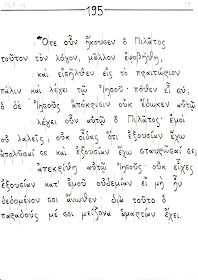 195
Ὅτε οὖν ἤκουσεν ὁ Πιλᾶτος
τοῦτον τὸν λόγον, μᾶλλον ἐφοβήθη,
καὶ εἰσῆλθεν εἰς τὸ πραιτώριον
πάλιν καὶ λέγει τῷ Ἰησοῦ· πόθεν εἶ σύ;
ὁ δὲ Ἰησοῦς ἀπόκρισιν οὐκ ἔδωκεν αὐτῷ
λέγει οὖν αὐτῷ ὁ Πιλᾶτος· ἐμοὶ
οὐ λαλεῖς; οὐκ οἶδας ὅτι ἐξουσίαν ἔχω
ἀπολῦσαί σε καὶ ἐξουσίαν ἔχω σταυρῶσαί σε;
ἀπεκρίθη αὐτῷ Ἰησοῦς· οὐκ εἶχες
ἐξουσίαν κατ' ἐμοῦ οὐδεμίαν εἰ μὴ ἦν
δεδομένον σοι ἄνωθεν· διὰ τοῦτο ὁ
παραδούς μέ σοι μείζονα ἁμαρτίαν ἔχει.